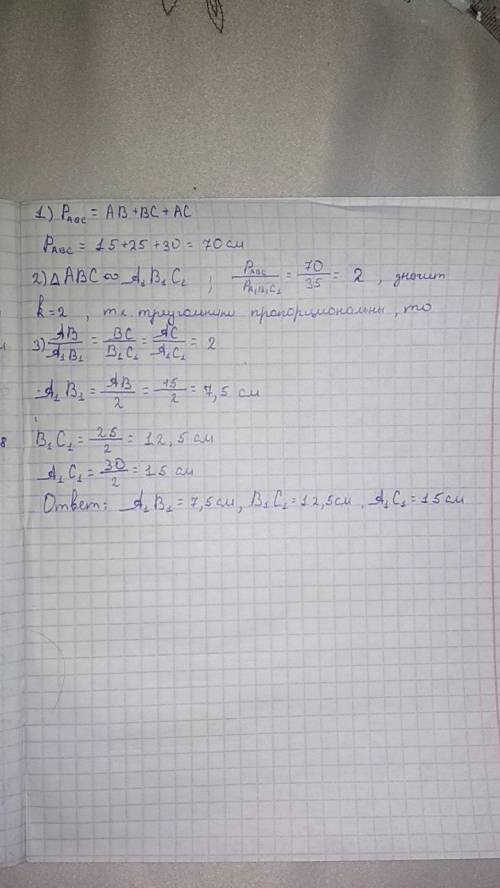 1) P_ABC = AB+BC+AC
P_ABC = 15+25+30 = 70 см
2) △ABC ∞ A₁B₁C₁ ; P_ABC/P_A₁B₁C₁ = 70/35 = 2 , значит
k=2 , т.к. треугольники пропорциональны , то
3) AB/A₁B₁ = BC/B₁C₁ = AC/A₁C₁ = 2
A₁B₁ = AB/2 = 15/2 = 7,5 см
B₁C₁ = 25/2 = 12,5 см
A₁C₁ = 30/2 = 15 см
Ответ: A₁B₁ = 7,5 см, B₁C₁ = 12,5 см, A₁C₁ = 15 см